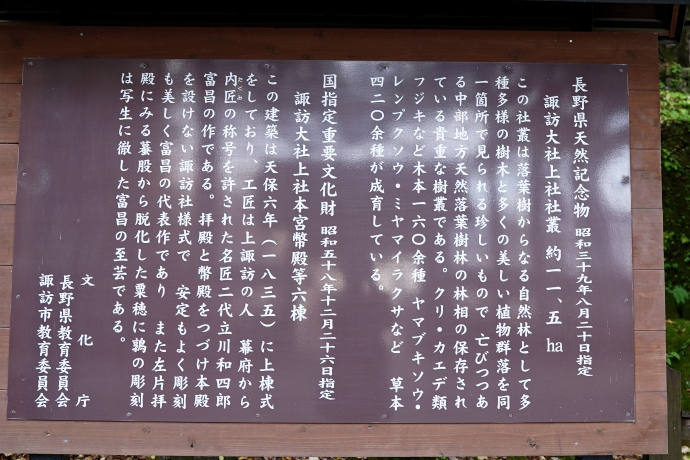 長野県天然記念物 昭和三十九年八月二十日指定
諏訪大社上社社叢 約一一、五 ha
この社叢は落葉樹からなる自然林として多
種多様の樹木と多くの美しい植物群落を同
一箇所で見られる珍しいもので 亡びつつあ
る中部地方天然落葉樹林の林相の保存され
ている貴重な樹叢である。クリ・カエデ類
フジキなど木本一六〇余種 ヤマブキソウ・
レンプクソウ・ミヤマイラクサなど 草本
四二〇余種が成育している。
国指定重要文化財 昭和五十八年十二月二十六日指定
諏訪大社上社本宮幣殿等六棟
この建築は天保六年（一八三五）に上棟式
をしており、工匠は上諏訪の人 幕府から
内匠の称号を許された名匠二代立川和四郎
たくみ
富昌の作である。拝殿と幣殿をつづけ本殿
を設けない諏訪社様式で 安定もよく彫刻
も美しく富昌の代表作であり また左片拝
殿にみる蟇股から脱化した粟穂に鶉の彫刻
は写生に徹した富昌の至芸である。
文化庁
長野県教育委員会
諏訪市教育委員会